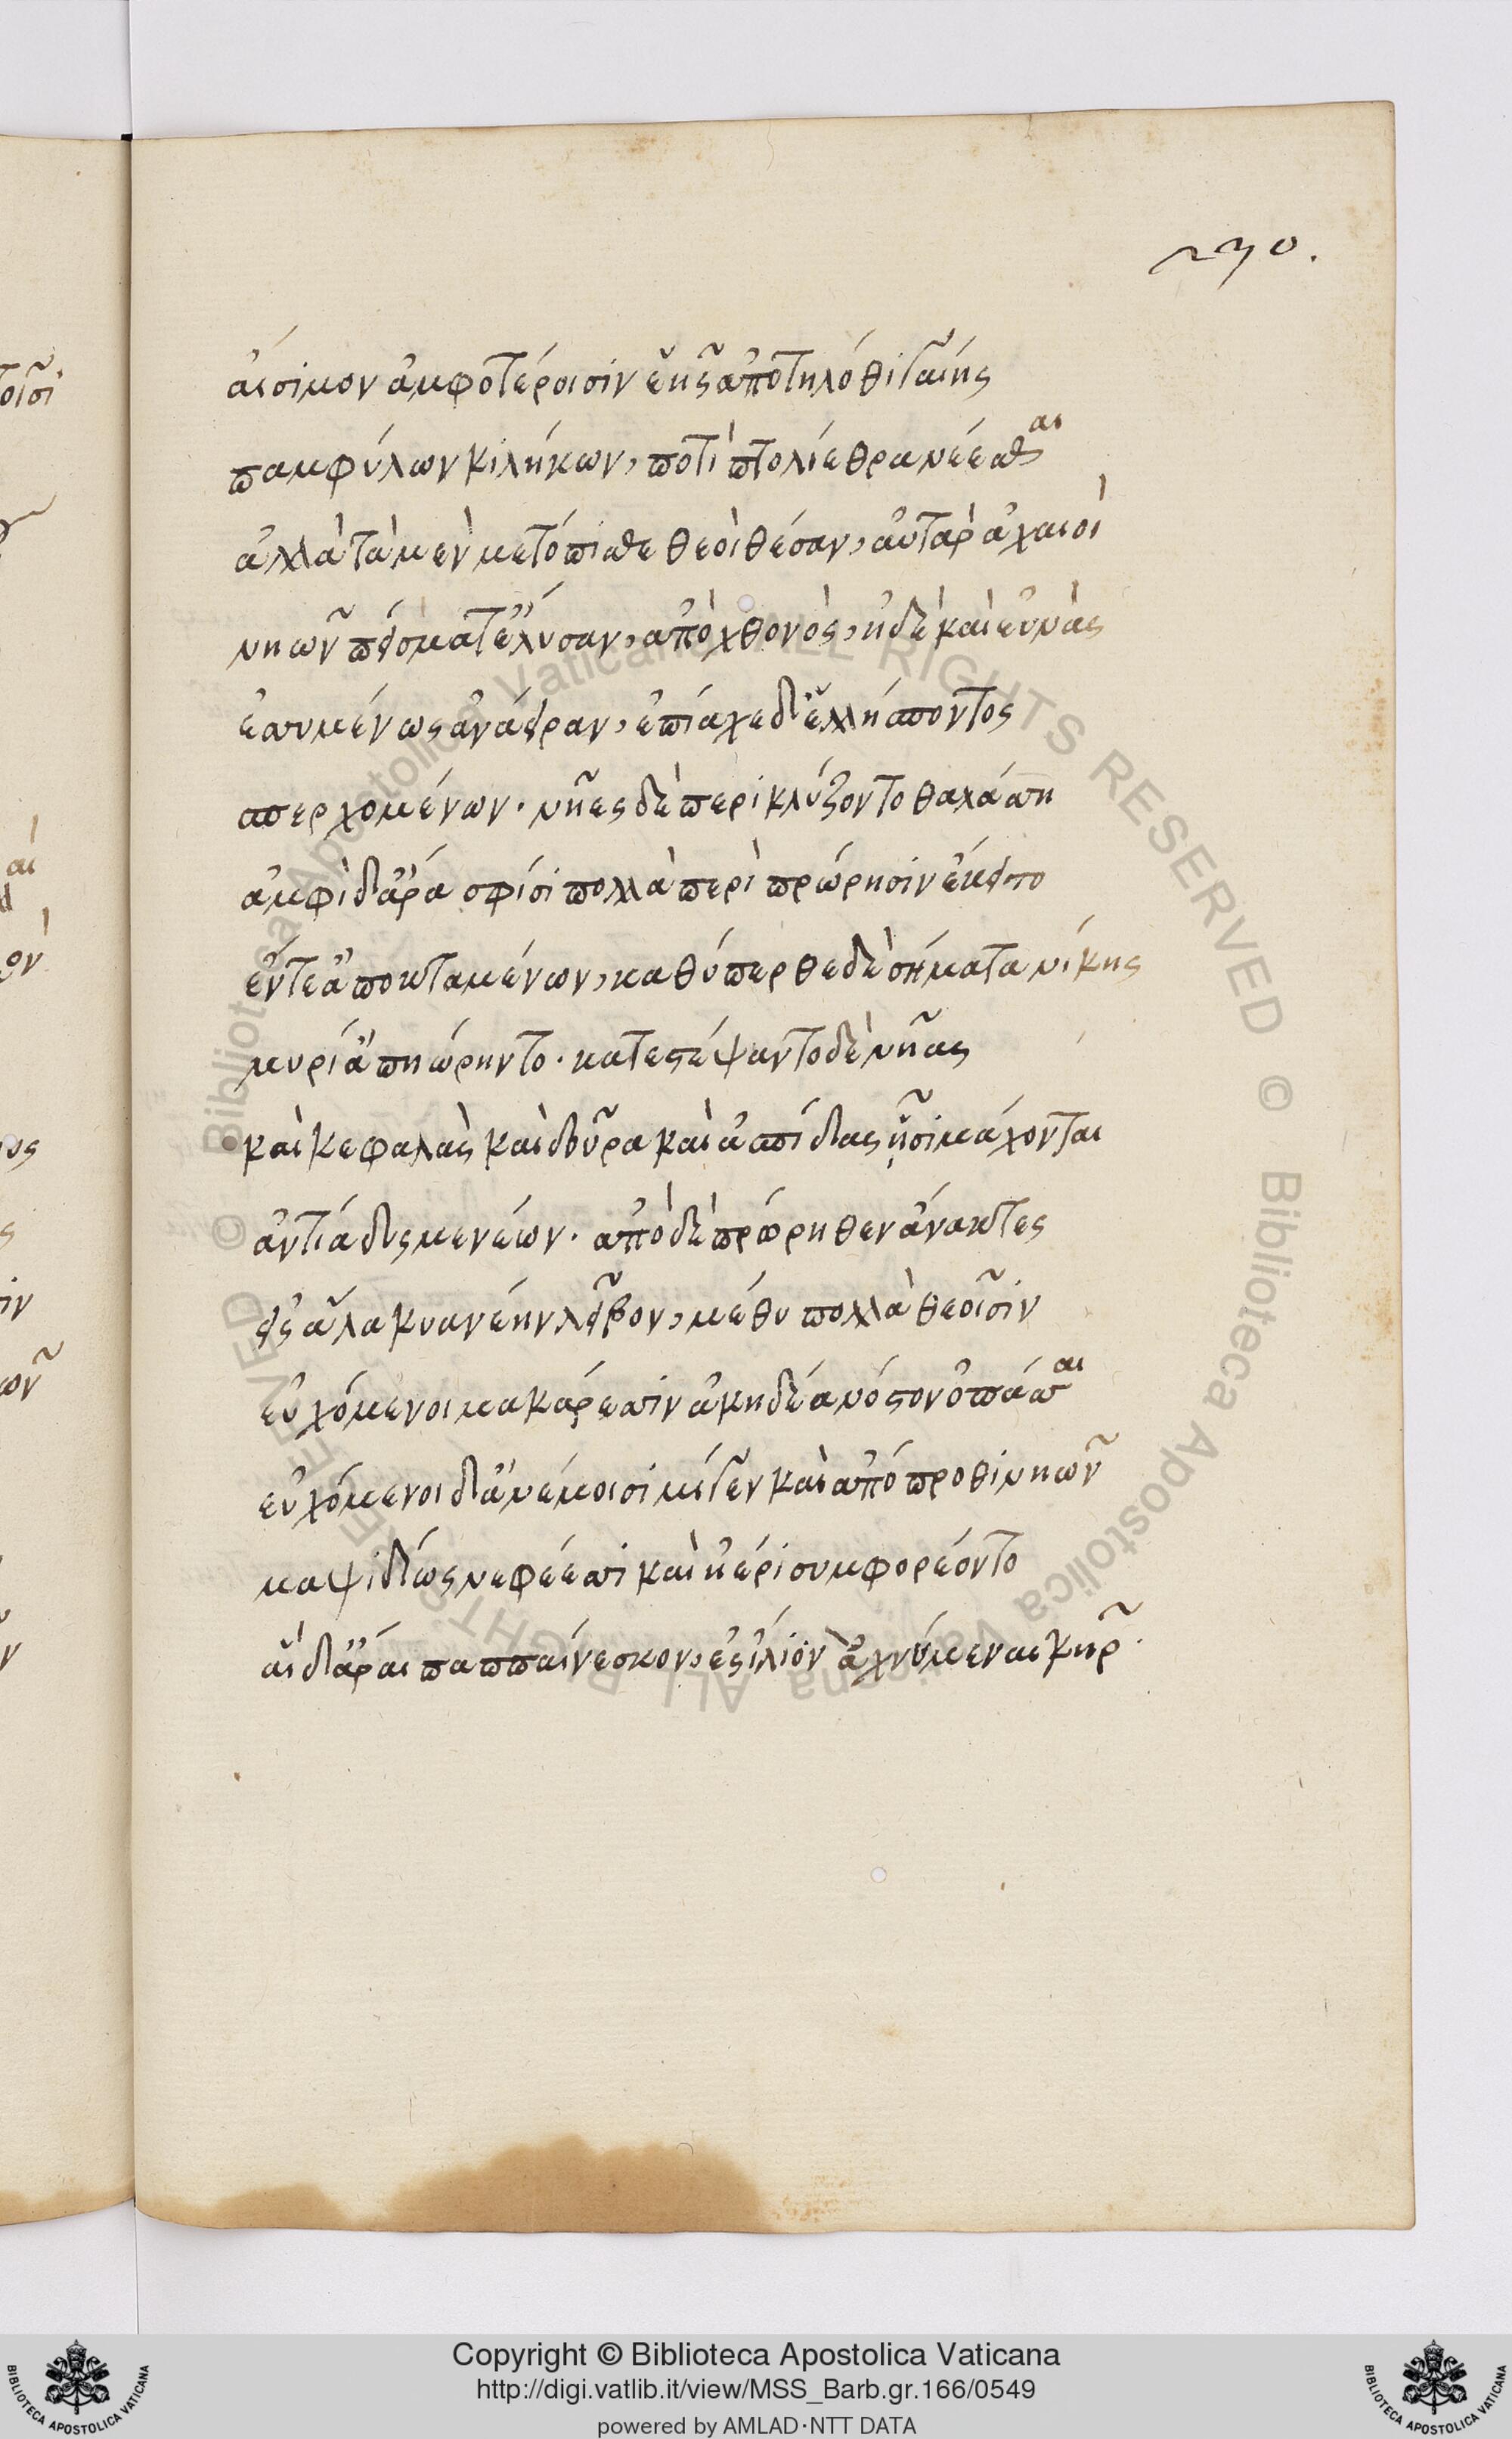 270.
αἴσιμον ἀμφοτέροισιν ἑῆς ἀπὸ τηλόθι γαίης
παμφύλων κιλήκων, ποτὶ πτολίεθρα νέεσθαι
ἀλλὰ τὰ μὲν μετόπισθε θεοὶ θέσαν, αὐτὰρ ἀχαιοὶ
νηῶν πείσματ' ἔλυσαν, ἀπὸ χθονὸς, ἠδὲ καὶ εὐνὰς
ἐσσυμένως ἀνάειραν, ἐπίαχε δ' ἑλλήσποντος
σπερχομένων. νῆες δὲ περικλύζοντο θαλάσση
ἀμφὶ δ' ἄρά σφισι πολλὰ περὶ πρώρησιν ἔκειτο
ἔντε' ἀποκταμένων, καθύπερθε δὲ σήματα νίκης
μυρί' ἀπηώρηντο. κατεστέψαντο δὲ νῆας
καὶ κεφαλὰς καὶ δοῦρα καὶ ἀσπίδας ᾗσι μάχονται
ἀντία δυσμενέων. ἀπὸ δὲ πρώρηθεν ἄνακτες
εἰς ἅλα κυανέην λεῖβον, μέθυ πολλὰ θεοῖσιν
εὐχόμενοι μακάρεσσιν ἀκηδέα νόστον ὀπάσσαι
εὐχόμενοι δ' ἀνέμοισι μίγεν καὶ ἀπόπροθι νηῶν
μαψιδίως νεφέεσσι καὶ ἠέρι συμφορέοντο
αἱ δ' ἄραι παππαίνεσκον, ἐς ἴλιον ἀχνύμεναι κῆρ.
Copyright © Biblioteca Apostolica Vaticana
http://digi.vatlib.it/view/MSS_Barb.gr.166/0549
powered by AMLAD·NTT DATA